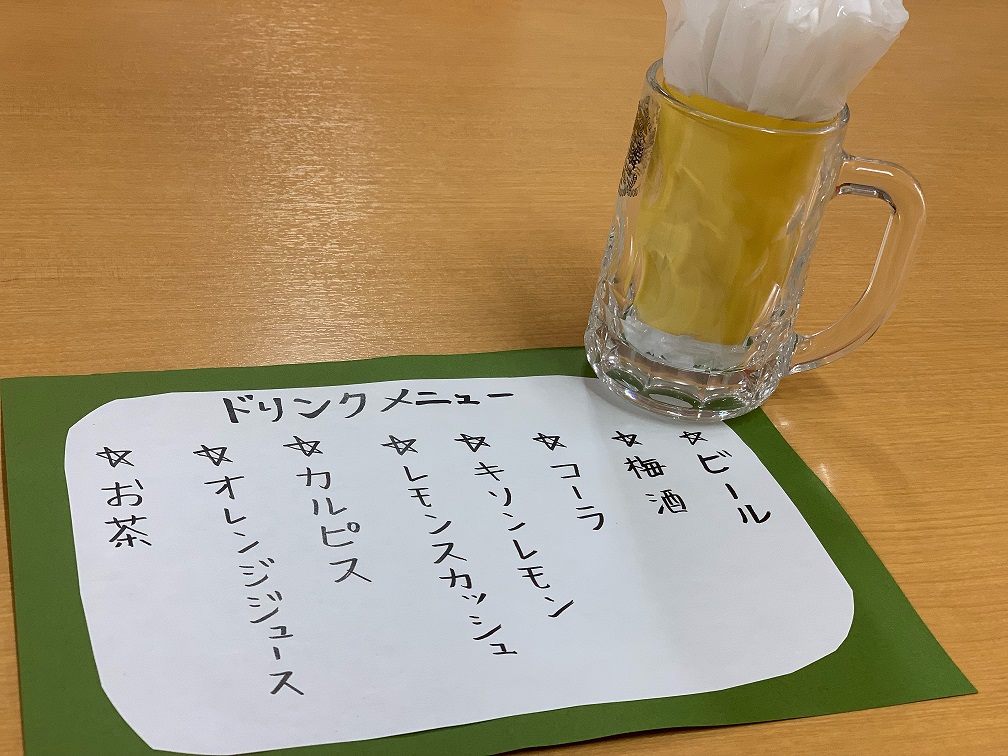 ドリンクメニュー
☆ビール
☆梅酒
☆コーラ
☆キリンレモン
☆レモンスカッシュ
☆カルピス
☆オレンジジュース
☆お茶